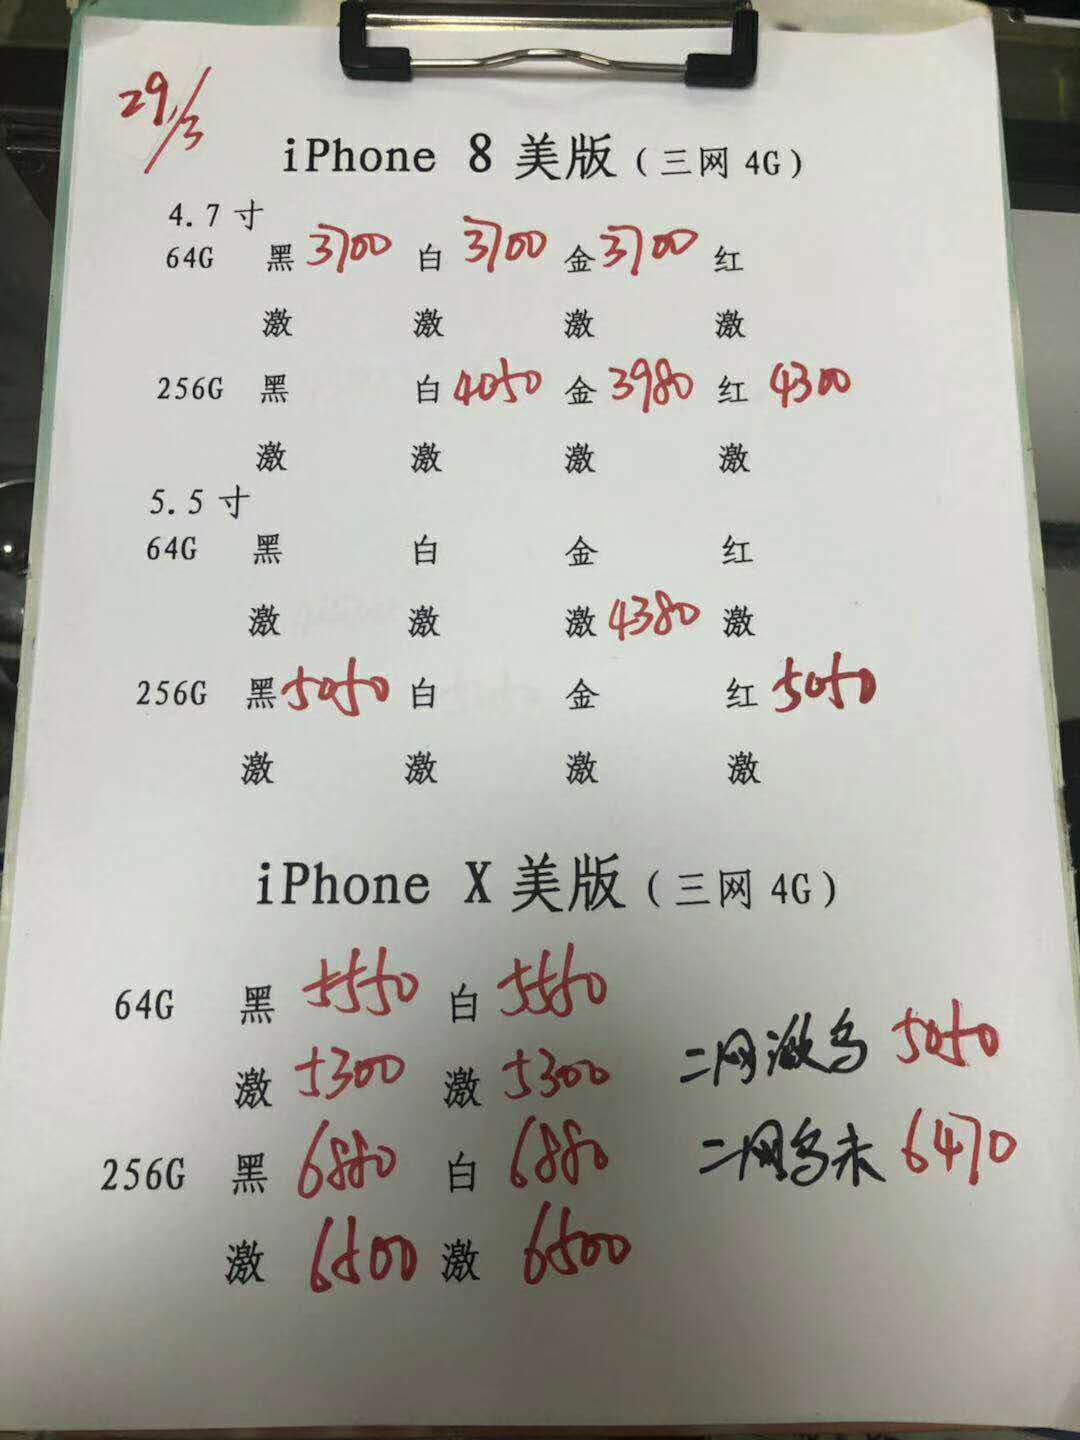 29/3
iPhone 8 美版（三网 4G）
4.7 寸
64G 黑 3700 白 3700 金 3700 红
激 激 激 激
256G 黑 白 4050 金 3980 红 4300
激 激 激 激
5.5 寸
64G 黑 白 金 红
激 激 激 4380 激
256G 黑 5050 白 金 红 5050
激 激 激 激
iPhone X 美版（三网 4G）
64G 黑 5550 白 5550
激 5300 激 5300 二网激乌 5050
256G 黑 6880 白 6880 二网乌未 6470
激 6500 激 6500